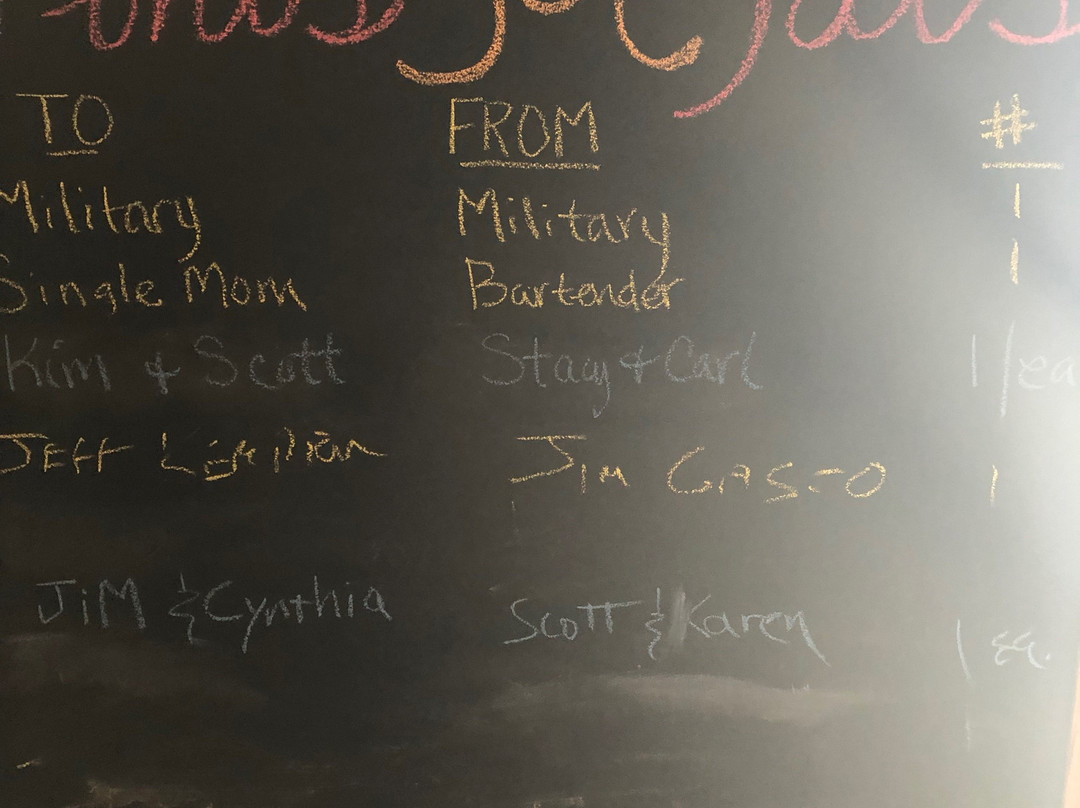 TO FROM #
Military Military 1
Single Mom Bartender 1
Kim & Scott Stacy & Carl 1/ea
JEFF JIM 1
JiM & Cynthia Scott & Karen 1 ea.